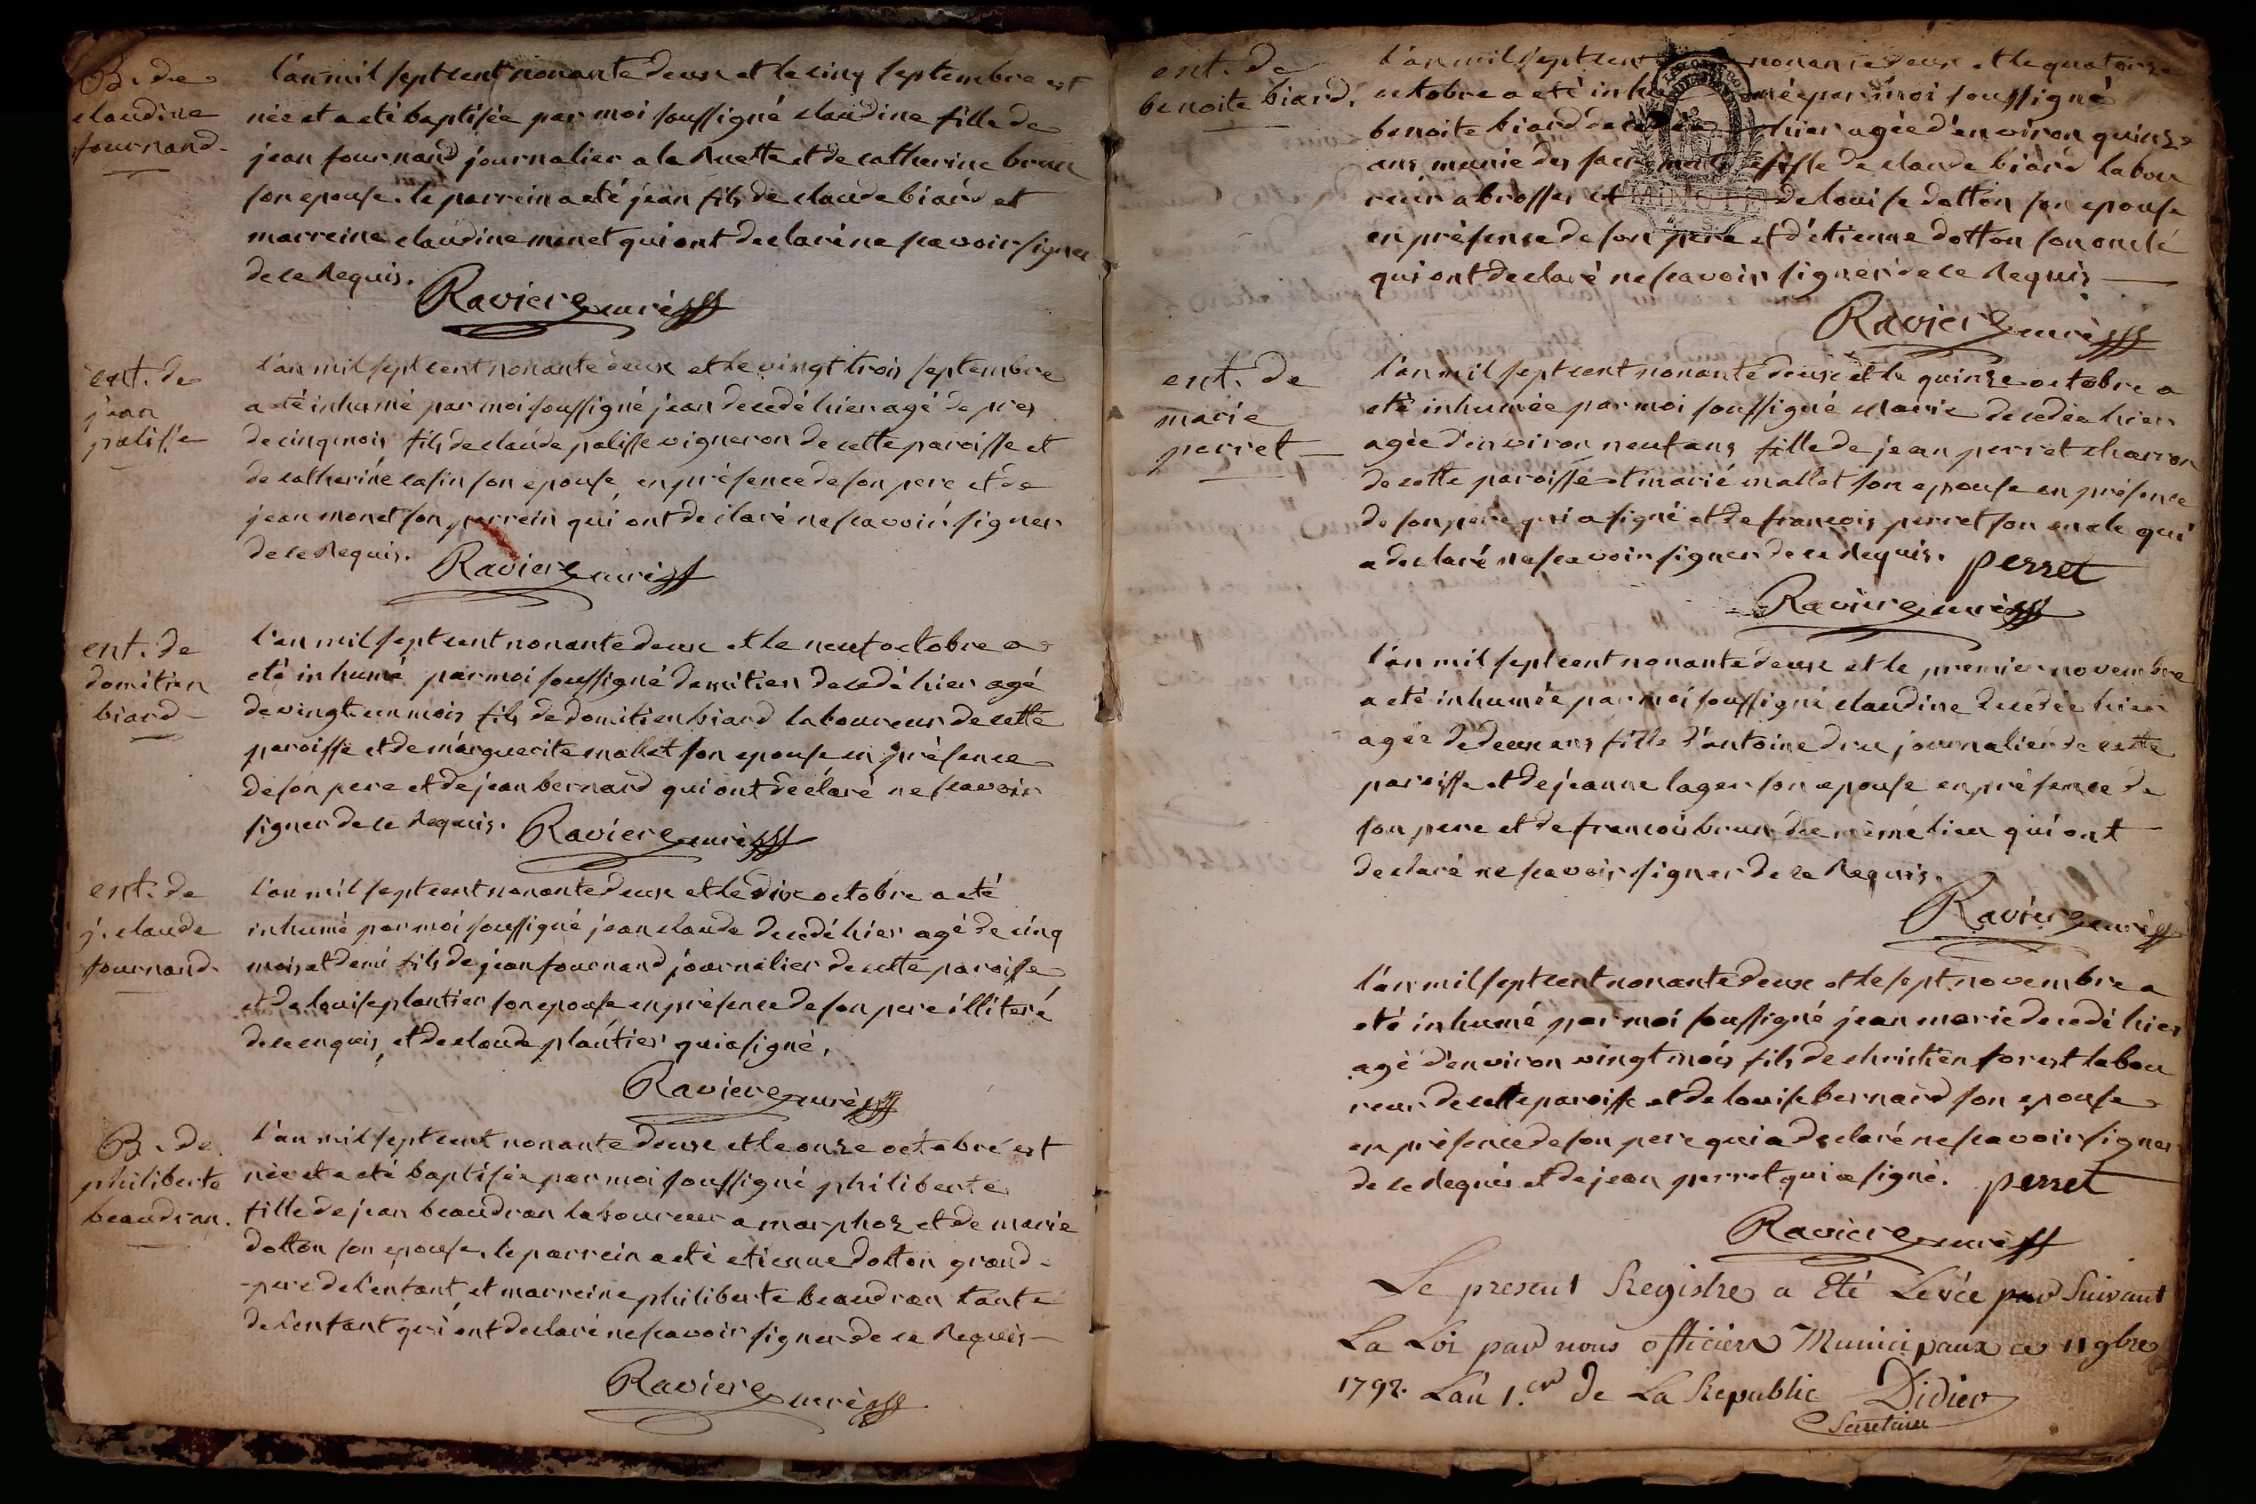 B. de
claudine
fournand
l'an mil sept cent nonante deux et le cinq septembre est
née et a eté baptisée par moi soussigné claudine fille de
jean fournand journalier a la Ruette et de catherine brun
son epouse. le parrein a eté jean fils de claude biard et
marreine claudine monet qui ont declaré ne scavoir signer
de ce Requis.
Raviere curé
ent. de
jean
palisse
l'an mil sept cent nonante deux et le vingt trois septembre
a eté inhumé par moi soussigné jean decedé hier agé de pres
de cinq mois fils de claude palisse vigneron de cette paroisse et
de catherine cafin son epouse, en présence de son pere et de
jean monet son parrein qui ont declaré ne scavoir signer
de ce Requis.
Raviere curé
ent. de
domitien
biard
l'an mil sept cent nonante deux et le neuf octobre a
eté inhumé par moi soussigné domitien decedé hier agé
de vingt un mois fils de domitien biard laboureur de cette
paroisse et de marguerite mallet son epouse en présence
de son pere et de jean bernard qui ont déclaré ne scavoir
signer de ce Requis.
Raviere curé
ent. de
j. claude
fournand
l'an mil sept cent nonante deux et le dix octobre a eté
inhumé par moi soussigné jean claude decedé hier agé de cinq
mois et demi fils de jean fournand journalier de cette paroisse
et de louise plantier son epouse en présence de son pere illiteré
de ce enquis, et de claude plantier qui a signé.
Raviere curé
B. de
philiberte
beaudran.
l'an mil sept cent nonante deux et le onze octobre est
née et a eté baptisée par moi soussigné philiberte
fille de jean beaudran laboureur a marphoz et de marie
dotton son epouse. le parrein a eté etienne dotton grand-
-pere de l'enfant, et marreine philiberte beaudran tante
de l'enfant qui ont declaré ne scavoir signer de ce Requis
Raviere curé
ent. de
benoite biard.
l'an mil sept cent nonante deux et le quatorze
octobre a eté par moi soussigné
benoite biard hier agée d'environ quinze
ans munie des fille de claude biard labou
reur a brosses et de louise dotton son epouse
en présence de son pere et d'etienne dotton son oncle
qui ont declaré ne scavoir signer de ce Requis
Raviere curé
ent. de
marie
perret
l'an mil sept cent nonante deux et le quinze octobre a
eté inhumée par moi soussigné marie decedée hier
agée d'environ neuf ans fille de jean perret charron
de cette paroisse et marie mallet son epouse en présence
de son pere qui a signé et de francois perret son oncle qui
a declaré ne scavoir signer de ce Requis. perret
Raviere curé
l'an mil sept cent nonante deux et le premier novembre
a eté inhumée par moi soussigné claudine decedée hier
agée de deux ans fille d'antoine dru journalier de cette
paroisse et de jeanne lager son epouse en présence de
son pere et de francois brun du même lieu qui ont
declaré ne scavoir signer de ce Requis.
Raviere curé
l'an mil sept cent nonante deux et le sept novembre a
eté inhumé par moi soussigné jean marie decedé hier
agé d'environ vingt mois fils de christien forest labou
reur de cette paroisse et de louise bernard son epouse
en présence de son pere qui a declaré ne scavoir signer
de ce Requis et de jean perret qui a signé. perret
Raviere curé
Le present Registre a Eté Levée par Suivant
La Loi par nous officiers Municipaux ce 11 9bre
1792. L'an 1.er de La Republic Didier
Secretaire